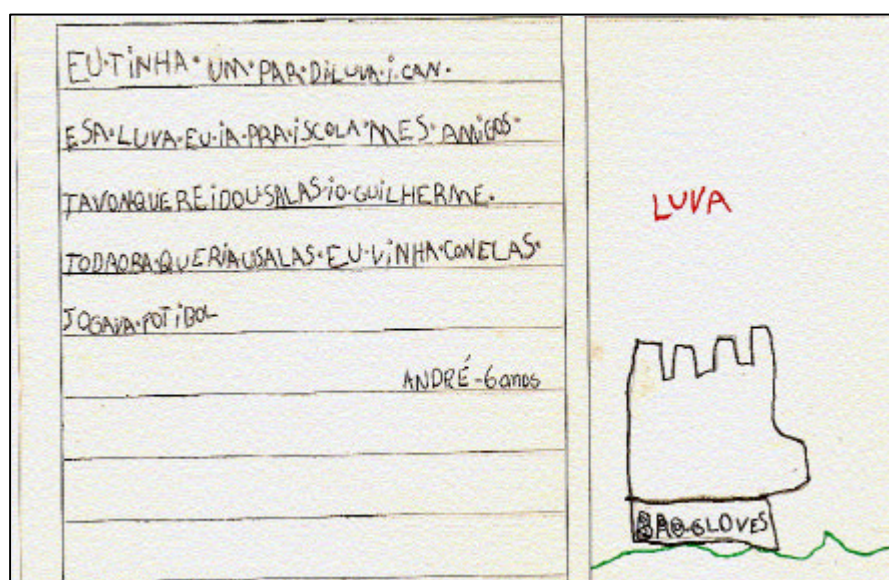 EU·TINHA·UM·PAR·DILUVA·I·CAN·
ESA·LUVA·EU·IA·PRA·ISCOLA·MES·AMIGOS·
TAVONQUEREIDOU·SALAS·IO·GUILHERME·
TODAORA·QUERIAUSALAS·EU·VINHA·CONELAS·
JOGAVA·FOTIBOL
ANDRÉ-6anos
LUVA
GLOVES